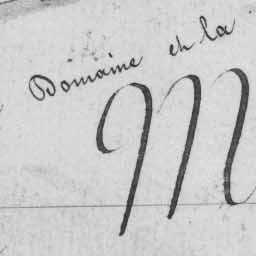 Domaine et la
M